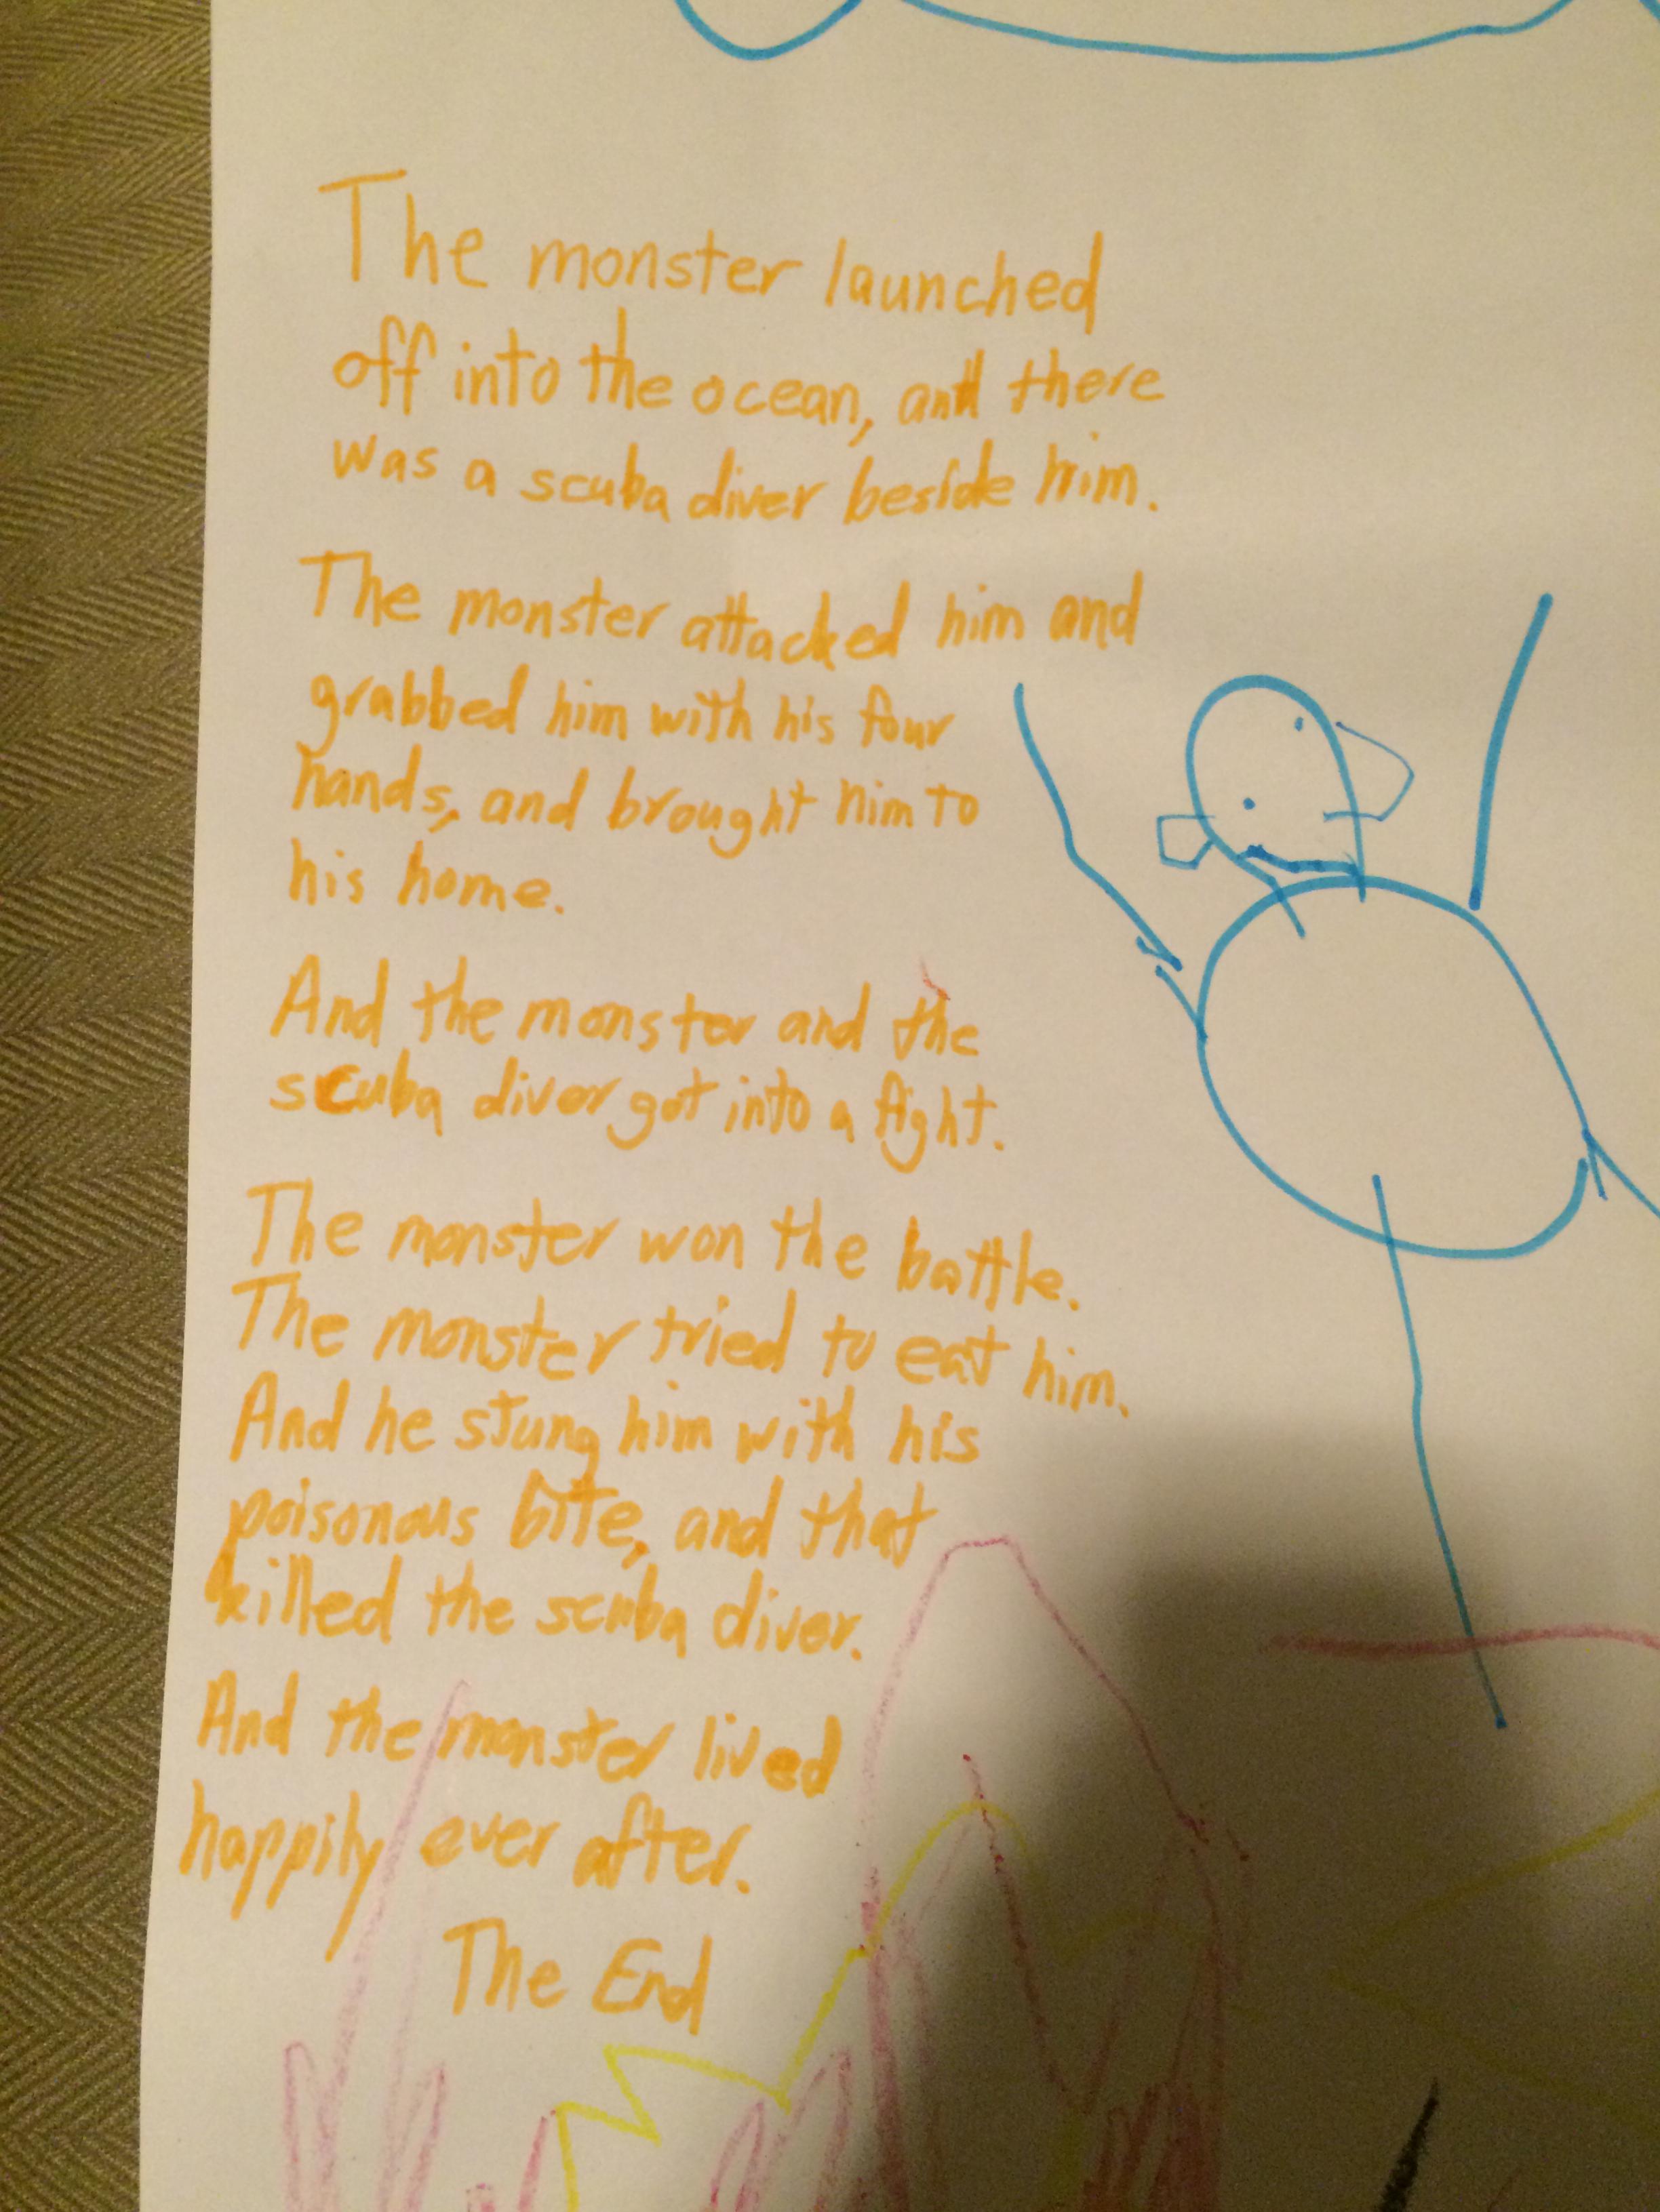 The monster launched
off into the ocean, and there
was a scuba diver beside him.
The monster attacked him and
grabbed him with his four
hands, and brought him to
his home.
And the monster and the
scuba diver got into a fight.
The monster won the battle.
The monster tried to eat him.
And he stung him with his
poisonous bite, and that
killed the scuba diver.
And the monster lived
happily ever after.
The End